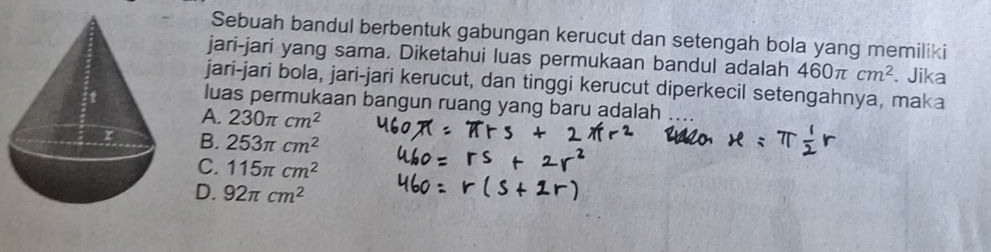 Sebuah bandul berbentuk gabungan kerucut dan setengah bola yang memiliki
jari-jari yang sama. Diketahui luas permukaan bandul adalah 460π cm². Jika
jari-jari bola, jari-jari kerucut, dan tinggi kerucut diperkecil setengahnya, maka
luas permukaan bangun ruang yang baru adalah ....
A. 230π cm²
B. 253π cm²
C. 115π cm²
D. 92π cm²
460π = πrs + 2πr² x = π ½ r
460 = rs + 2r²
460 = r(s + 2r)
t
r